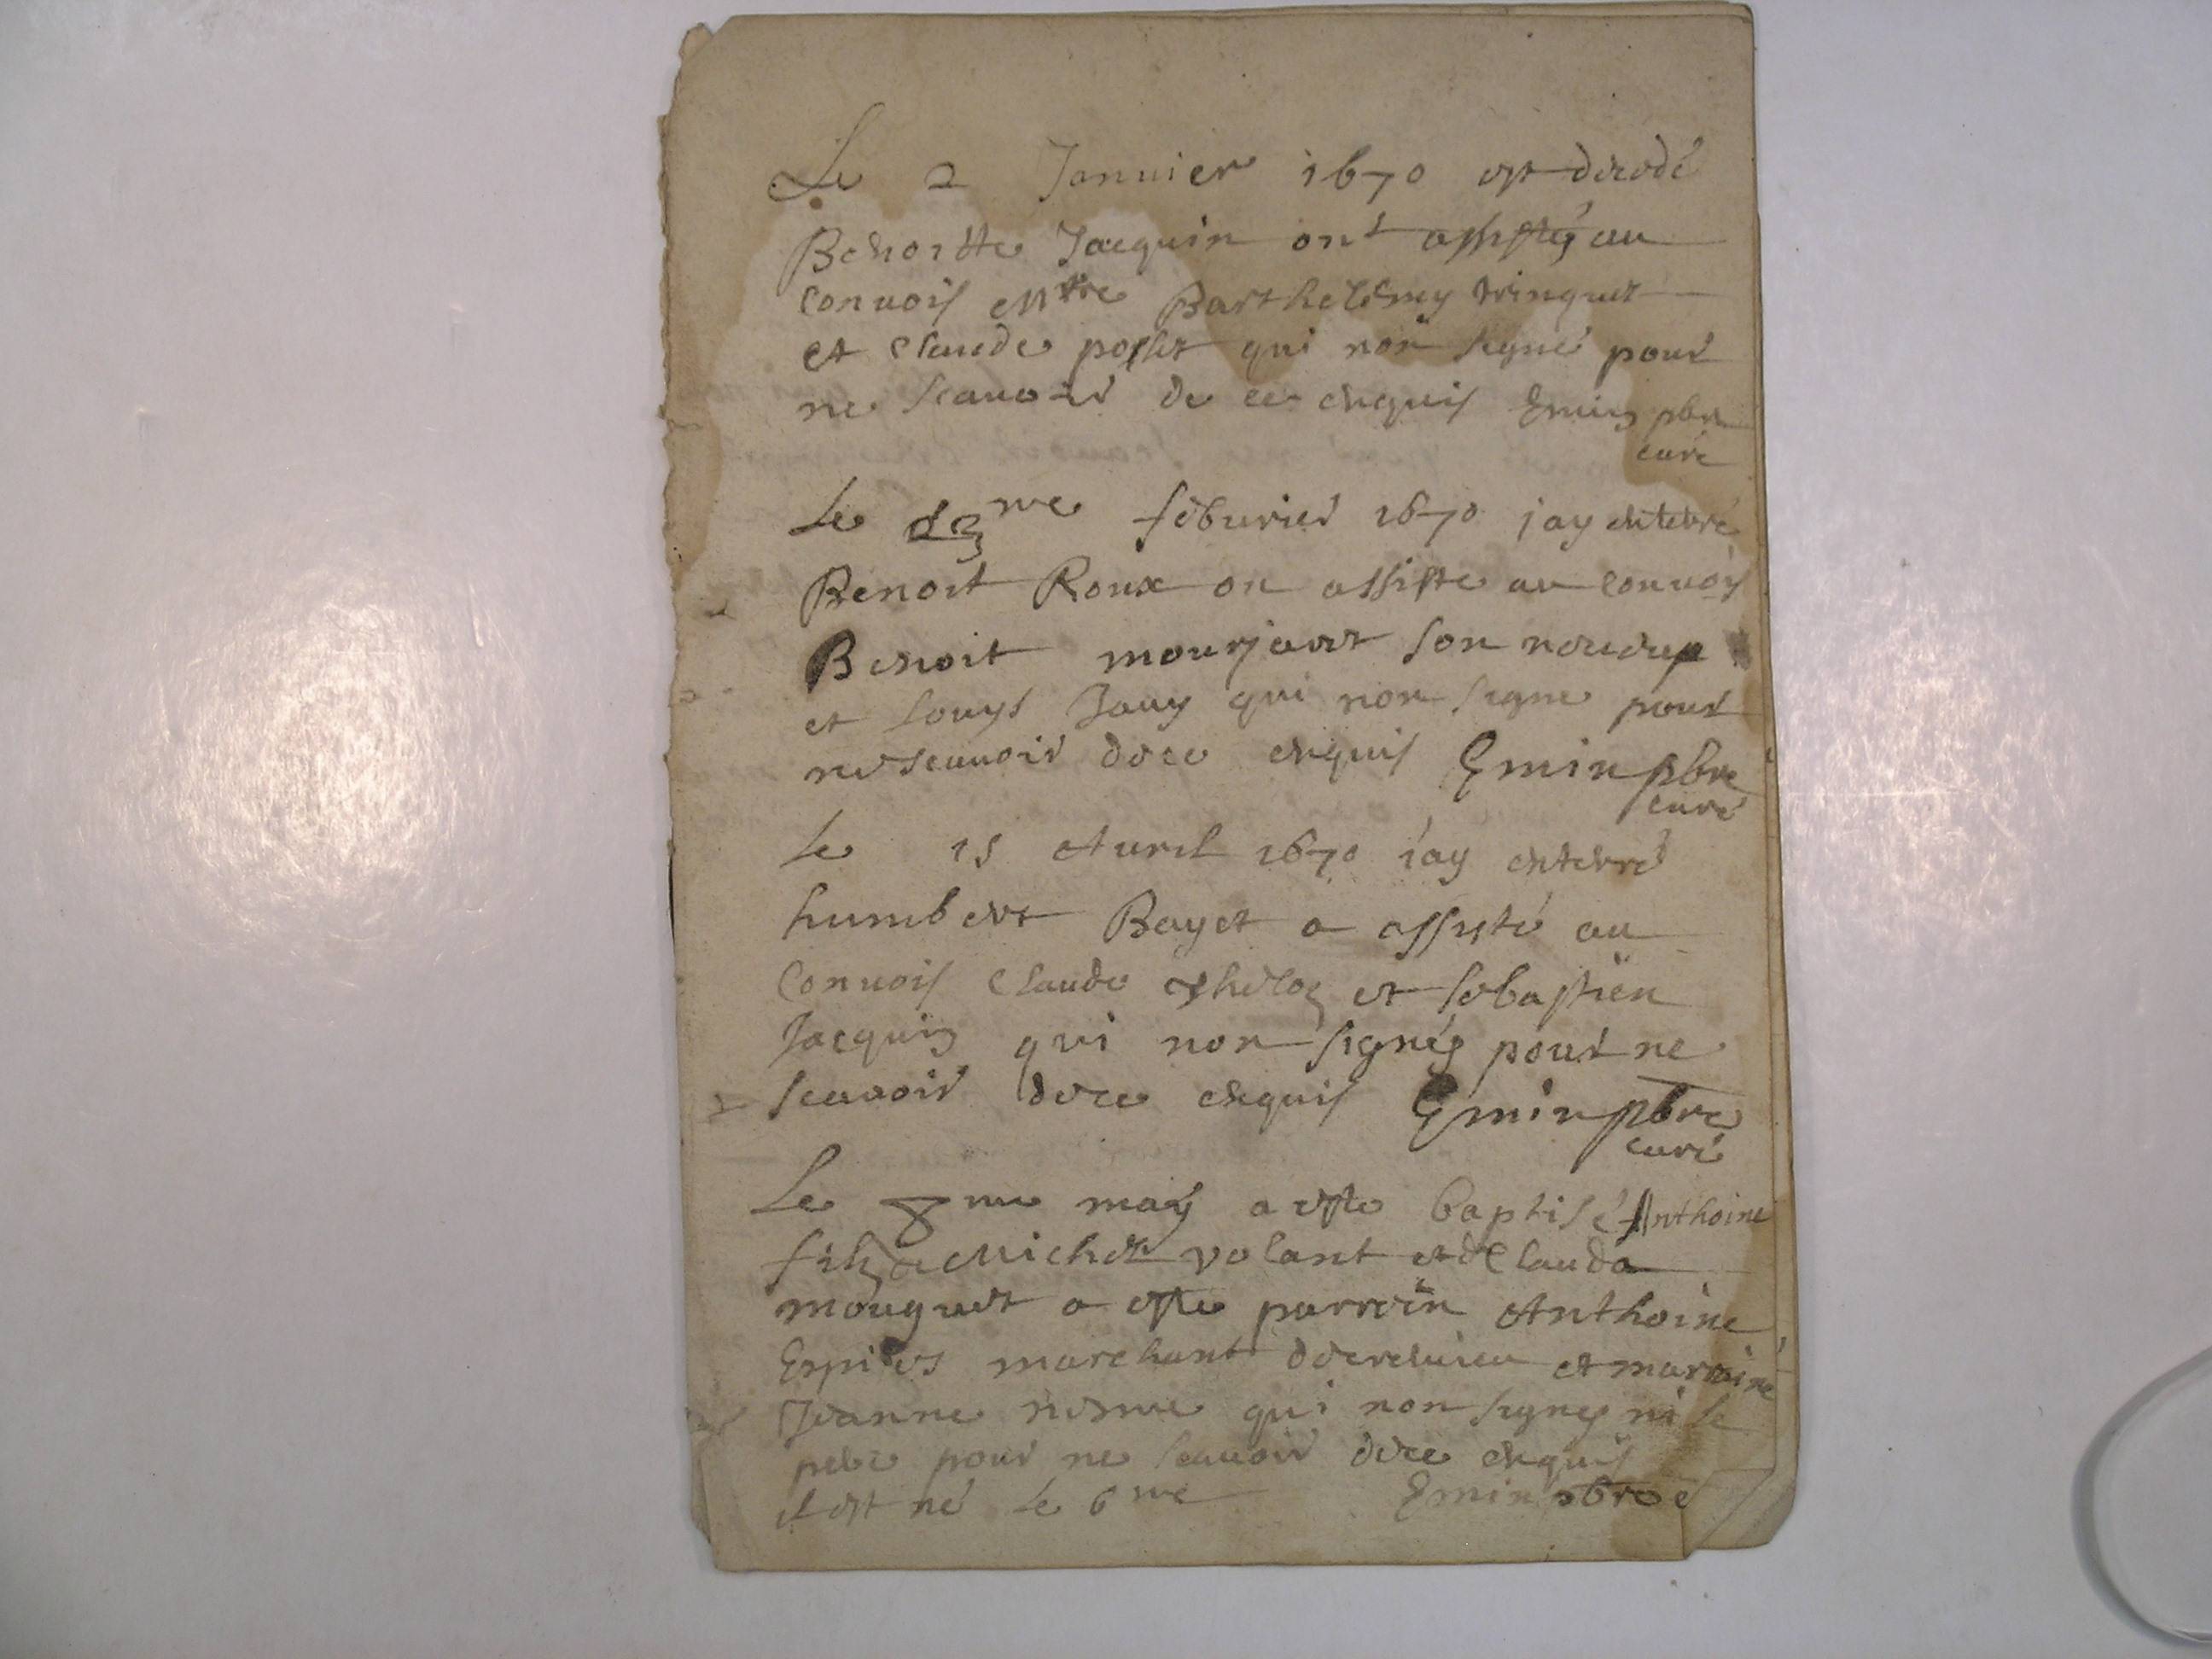 Le 2 Januier 1670 est decedé
Benoitte Jacquin ont assistés au
conuois Mtre Barthelemy
et Claude poslet qui non signé pour
ne scauoir de ce enquis Emin pbre
curé
Le me feburier 1670 jay enterré
Benoit Roux on assisté au conuois
Benoit mourjaret son
et Louys Jouy qui non signe pour
ne scauoir de ce enquis Emin pbre
curé
Le 15 Auril 1670 iay enterré
humbert Bayet a assisté au
Conuois Claude et sebastien
Jacquin qui non signés pour ne
scauoir de ce enquis Emin pbre
curé
Le 8 me may a esté baptisé Anthoine
filz de Michel volant et de Clauda
mouguet a esté parrein Anthoine
marchant et marraine
Jeanne qui non signés ni le
pere pour ne scauoir de ce enquis
il est né le 6 me Emin pbre c